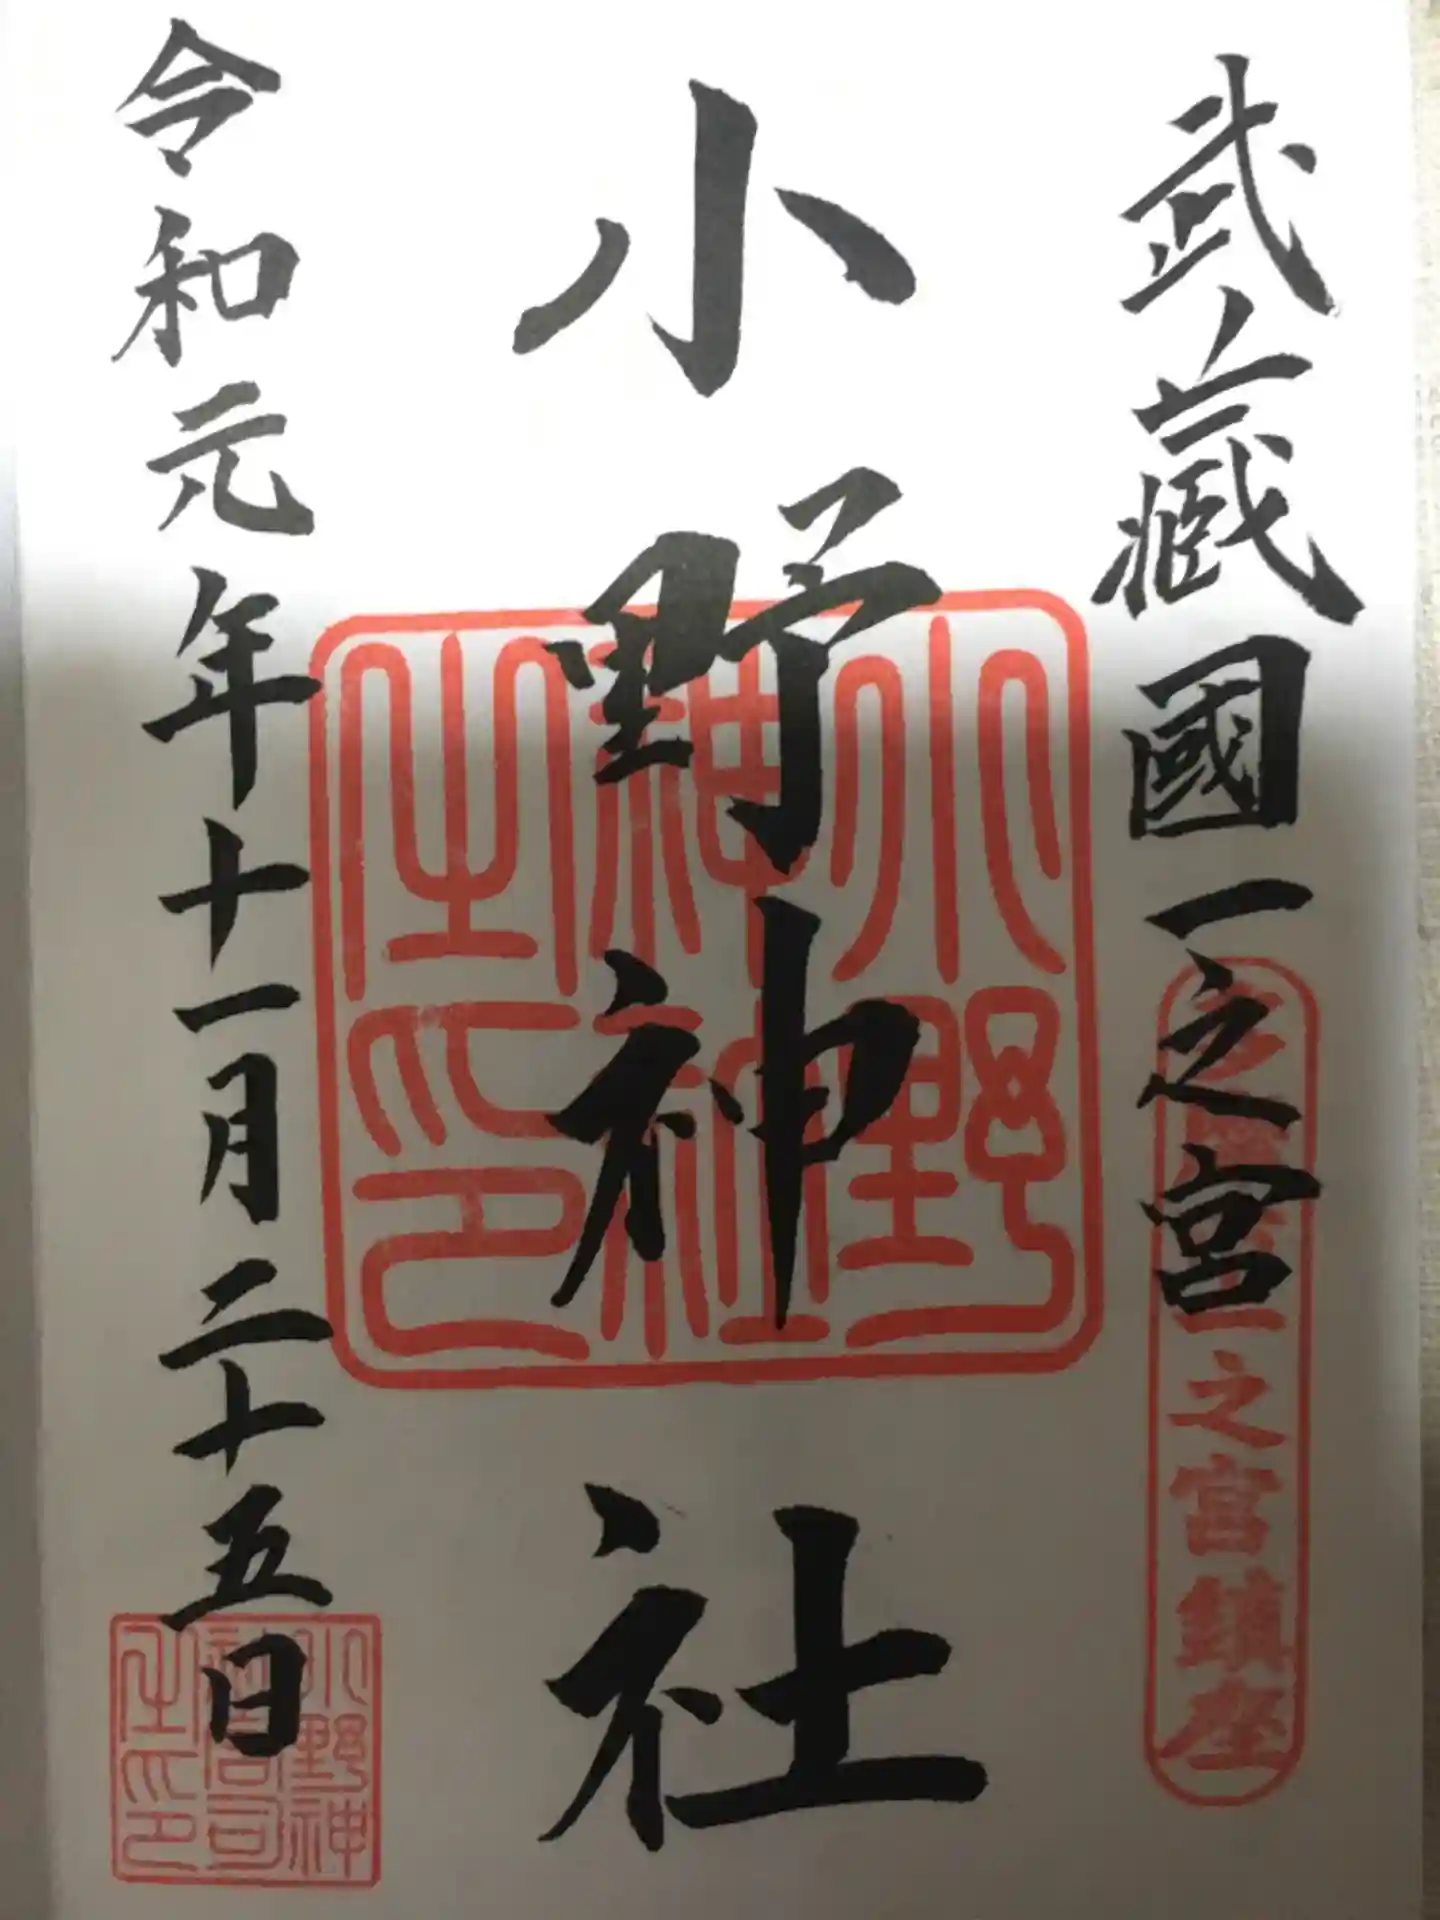 武藏國一之宮
之宮鎮座
小野神社
小野神社之印
令和元年十一月二十五日
小野神社宮司之印